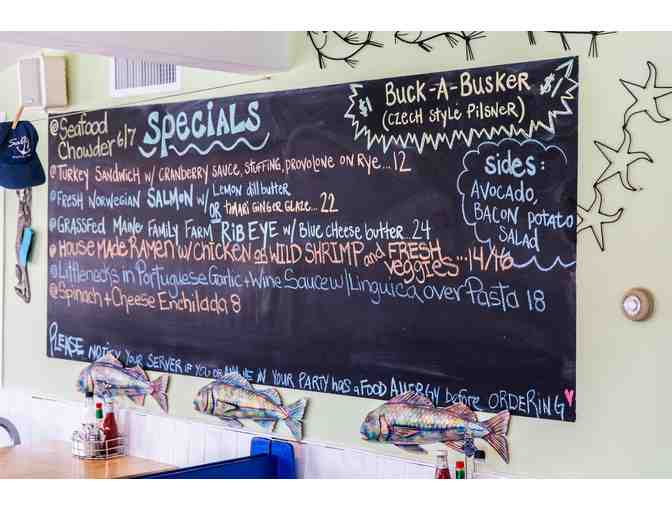 Seafood Chowder 6/7
Specials
$1 Buck-A-Busker $1/
(Czech Style Pilsner)
Turkey Sandwich w/ cranberry sauce, stuffing, provolone on Rye...12
Fresh Norwegian Salmon w/ Lemon dill butter
OR tamari Ginger Glaze...22
Grassfed Maine Family Farm Rib Eye w/ Blue Cheese butter 24
House Made Ramen w/ Chicken or Wild Shrimp and Fresh veggies...14/16
Littlenecks in Portuguese Garlic + Wine Sauce w/ Linguica over Pasta 18
Spinach + Cheese Enchilada 8
Sides:
Avocado,
Bacon potato
Salad
Please notify your server if you or anyone in your party has a Food Allergy before ordering